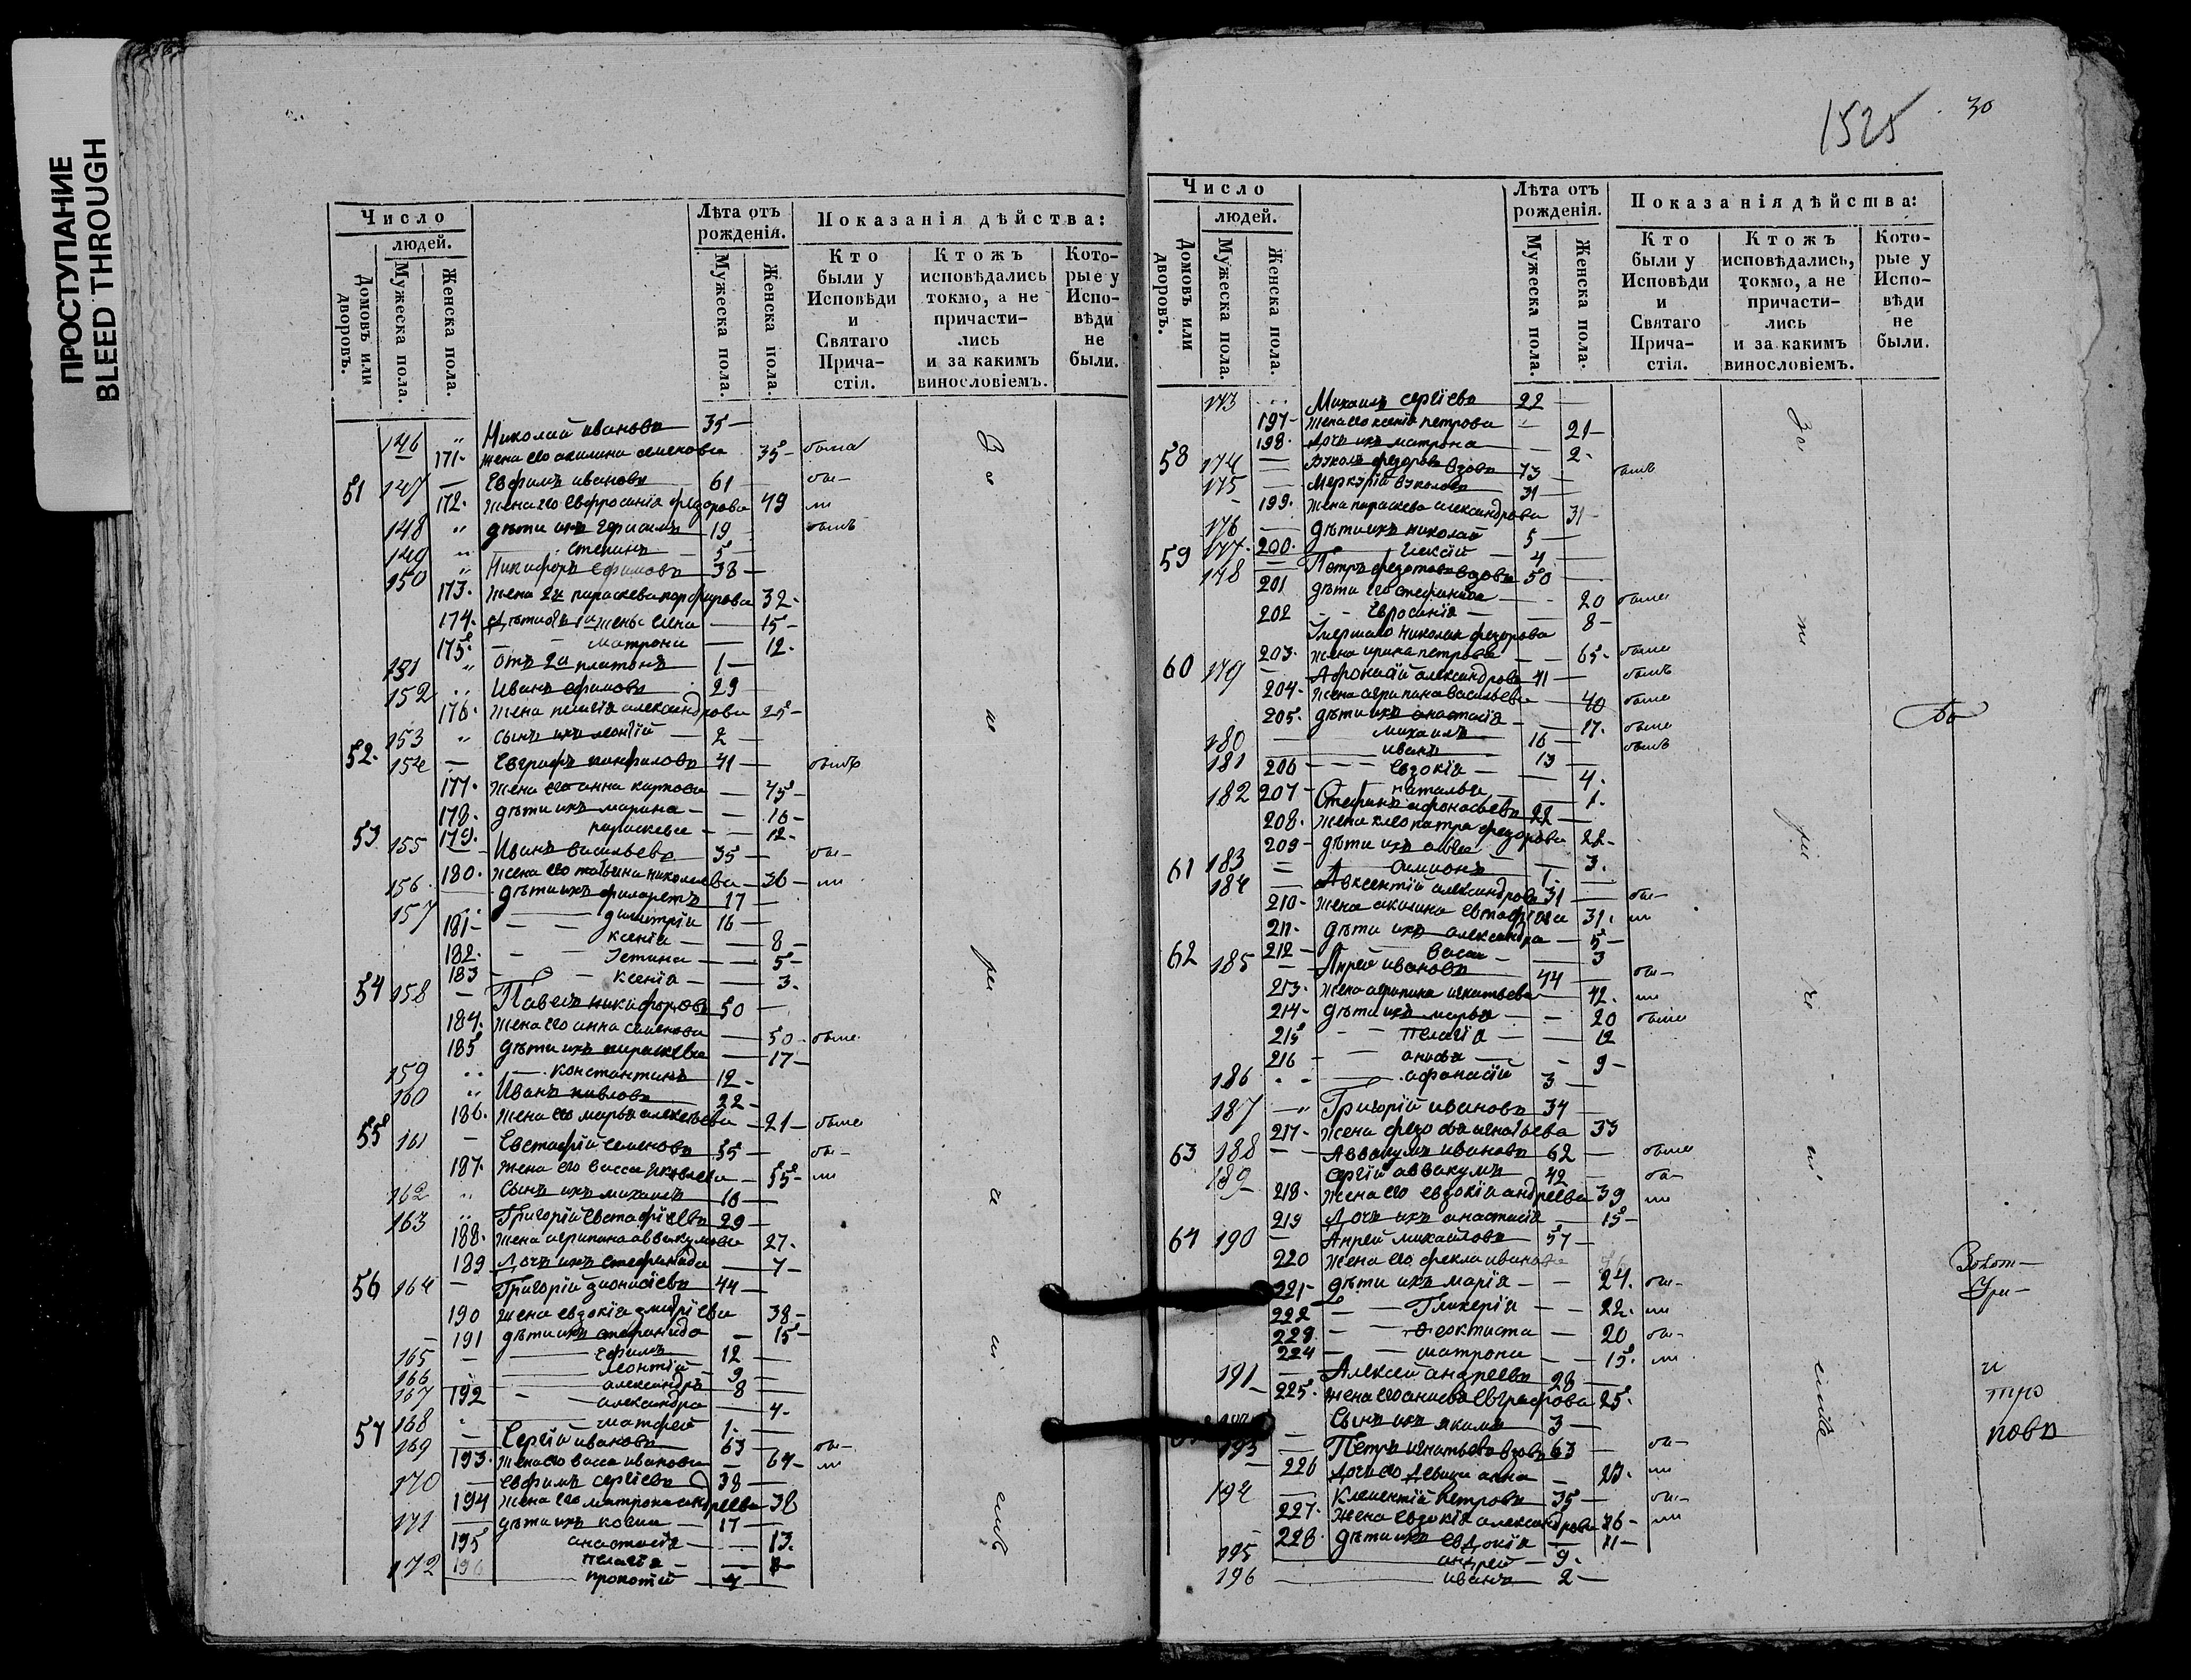 ПРОСТУПАНИЕ
BLEED THROUGH
Число
людей.
Домовъ или дворовъ.
Мужеска пола.
Женска пола.
Лѣта отъ рожденія.
Мужеска пола.
Женска пола.
Показанія дѣйства:
Кто были у Исповѣди и Святаго Прича-стія.
Ктожъ исповѣдались токмо, а не причасти-лись и за какимъ винословіемъ.
Кото-рые у Испо-вѣди не были.
146 Николай Ивановъ 35
171 Жена его акилина семенова 35 была
51 147 Евфимъ ивановъ 61 бы-
172 Жена его Евфросинія федорова 49 ли
148 дѣти ихъ Герасимъ 19 былъ
149 стефанъ 5
150 Никифоръ Ефимовъ 38
173 Жена 2я параскева порфирова 32
174 Дѣти отъ 1й жены Елена 15
175 матрона 12
151 отъ 2й платонъ 1
152 Иванъ ефимовъ 29
176 Жена пелагія александрова 25
153 сынъ ихъ леонтій 2
52 154 Евграфъ панфиловъ 41 былъ
177 Жена его анна карпова 45
178 дѣти ихъ марина 16
179 параскева 12
53 155 Иванъ васильевъ 35 бы-
180 Жена его татьяна николаева 36 ли
156 дѣти ихъ филаретъ 17
157 димитрій 16
181 ксенія 8
182 Устина 5
183 ксенія 3
54 158 Павелъ никифоровъ 50
184 Жена его анна семенова 50 была
185 дѣти ихъ параскева 17
159 константинъ 12
160 Иванъ павловъ 22
186 Жена его марья алексѣева 21 была
55 161 Евстафій семеновъ 55 бы-
187 Жена его васса яковлева 55 ли
162 Сынъ ихъ михаилъ 10
163 Григорій Евстафіевъ 29
188 Жена агрипина аввакумова 27
189 Дочь ихъ стефанида 7
56 164 Григорій дионисіевъ 44
190 Жена евдокія дмитріева 38
191 дѣти ихъ стефанида 15
165 ефимъ 12
166 леонтій 9
167 александръ 8
192 александра 4
168 матфей 1
57 169 Сергій ивановъ 63 бы-
193 Жена его васса иванова 64 ли
170 евфимъ сергіевъ 38
194 Жена его матрона андреева 38
171 дѣти ихъ косма 17
195 анастасія 13
196 пелагія
172 прокопій 4
1525
30
Число
людей.
Домовъ или дворовъ.
Мужеска пола.
Женска пола.
Лѣта отъ рожденія.
Мужеска пола.
Женска пола.
Показанія дѣйства:
Кто были у Исповѣди и Святаго Прича-стія.
Ктожъ исповѣдались, токмо, а не причасти-лись и за какимъ винословіемъ.
Кото-рые у Испо-вѣди не были.
173 Михаилъ сергіевъ 22
197 Жена его ксенія петрова 21
198 Дочь ихъ матрона 2
58 174 Вуколъ федоровъ вдовъ 73 былъ
175 Меркурій вуколовъ 31
199 Жена параскева александрова 31
176 дѣти ихъ николай 5
177 200 алексій 4
59 178 Петръ федотовъ вдовъ 50
201 дѣти его стефанида 20 была
202 Евросинія 8
Умершаго николая федорова
203 жена ирина петрова 65 была
60 179 Афонасій александровъ 41 былъ
204 Жена агрипина васильева 40 была
205 дѣти ихъ анастасія 17 была
180 михаилъ 16 былъ
181 иванъ 13
206 Евдокія 4
207 наталья 1
182 Стефанъ афонасьевъ 22
208 Жена клеопатра федорова 22
209 дѣти ихъ 3
183 1
61 184 Авксентій александровъ 31 бы-
210 Жена акилина евстафіева 31 ли
211 дѣти ихъ александра 5
212 васса 3
62 185 Андрей ивановъ 44 бы-
213 Жена агрипина игнатьева 42 ли
214 дѣти ихъ марья 20 была
215 Пелагія 12
216 анисья 9
186 афанасій 3
187 Григорій ивановъ 34
217 Жена федосья игнатьева 33
63 188 Аввакумъ ивановъ 62
189 Сергій аввакумъ 42 бы-
218 Жена его евдокія андреева 39 ли
219 Дочь ихъ анастасія 15
64 190 Андрей михайловъ 57
220 Жена его фекла иванова
221 дѣти ихъ марія 24 бы-
222 Гликерія 22 ли
223 феоктиста 20 бы-
224 матрона 15 ли
191 Алексей андреевъ 28
225 Жена его анисья Евграфова 25
Сынъ ихъ якимъ 3
193 Петръ игнатьевъ вдовъ 63 бы-
226 Дочь его девица анна 23 ли
194 Клементій Петровъ 35 бы-
227 Жена евдокія александрова 36 ли
228 дѣти ихъ евдокія 11
195 андрей 9
196 иванъ 2